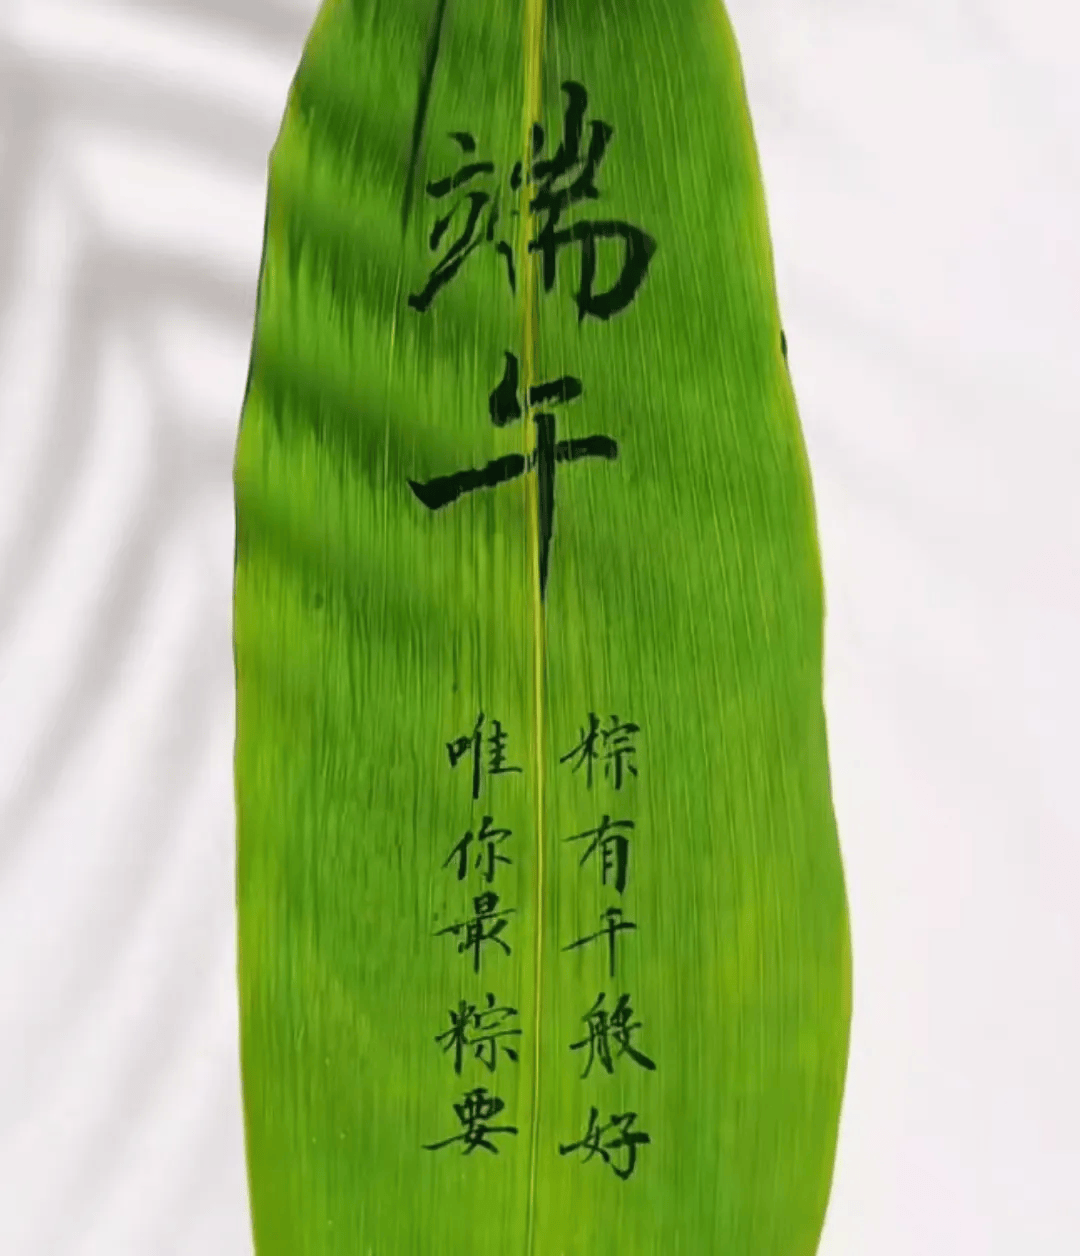 端午
粽有千般好
唯你最粽要